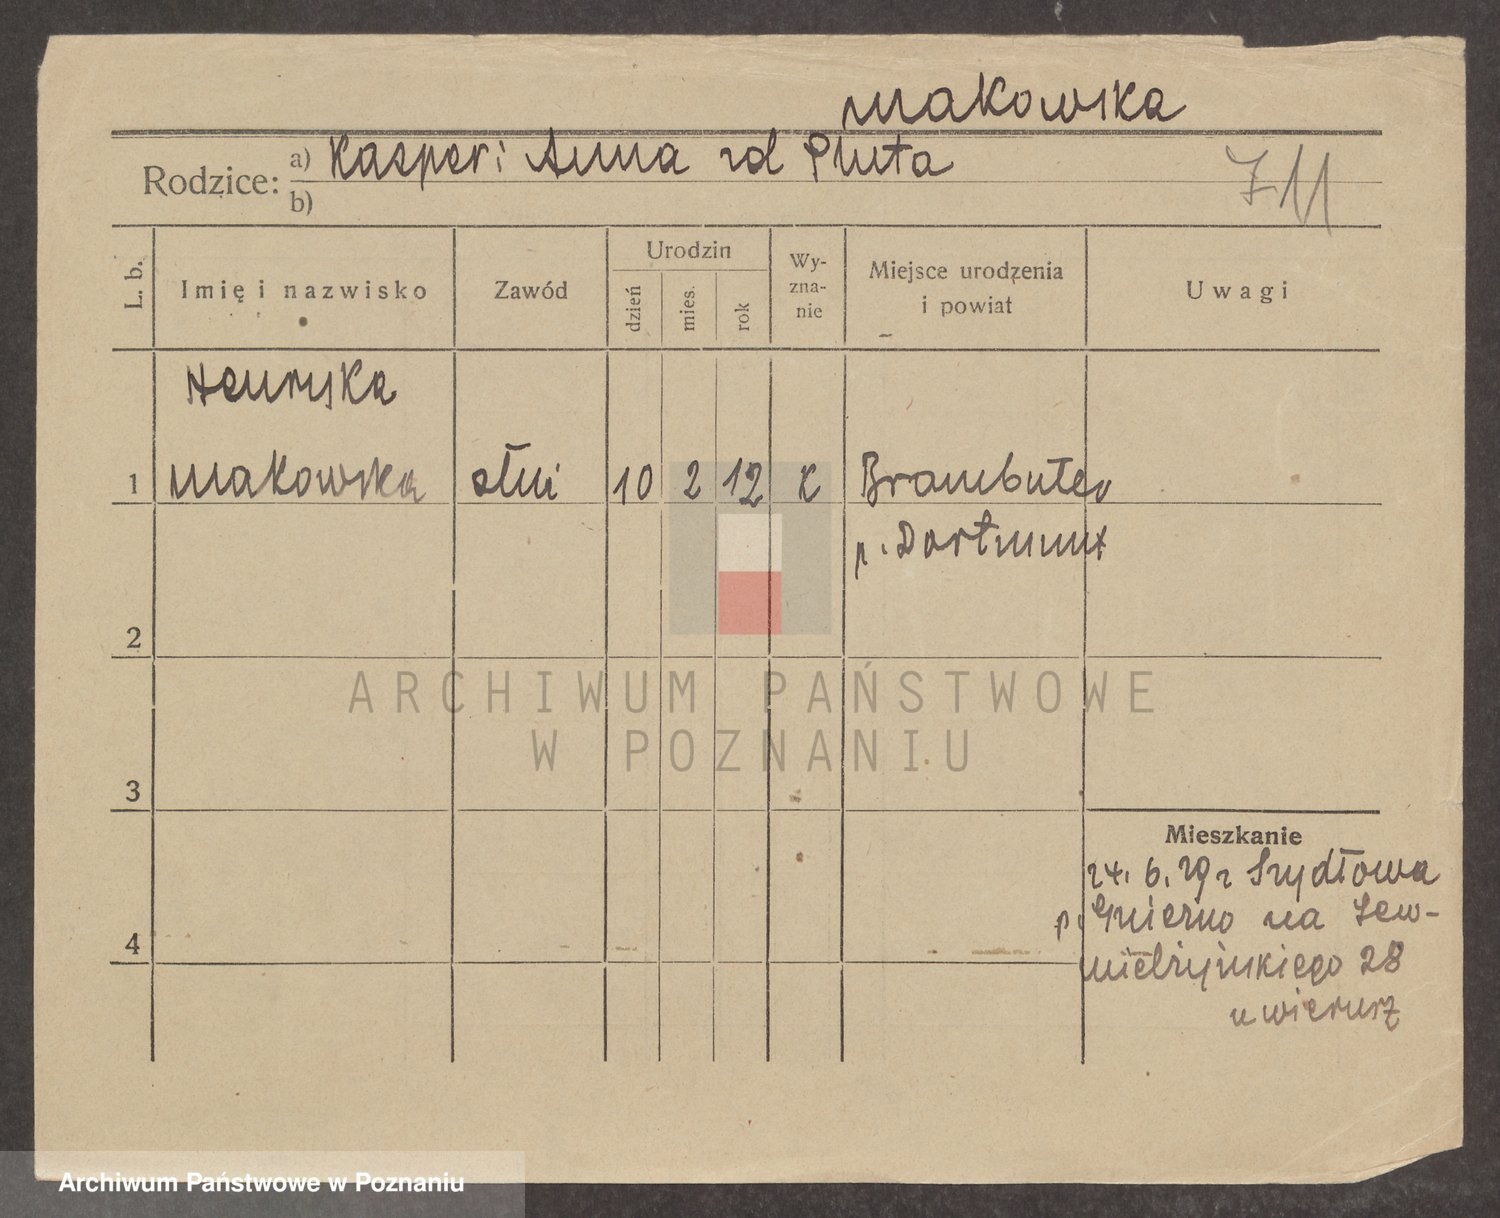 Makowska
Rodzice: a) Kasper i Anna zd Pluta
b)
711
L. b.
Imię i nazwisko
Zawód
Urodzin
dzień
mies.
rok
Wy-
zna-
nie
Miejsce urodzenia
i powiat
Uwagi
Henryka
1 Makowska służ 10 2 12 K
p. Dortmunt
2
ARCHIWUM PAŃSTWOWE
W POZNANIU
3
Mieszkanie
24. 6. 29 z Szydłowa
p. Gniezno na
28
4
u
Archiwum Państwowe w Poznaniu